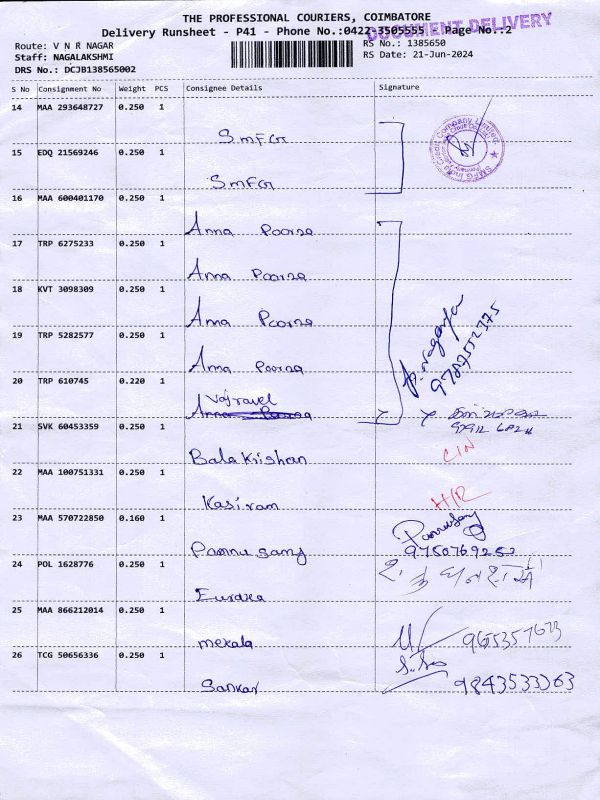 THE PROFESSIONAL COURIERS, COIMBATORE
DOCUMENT DELIVERY
Delivery Runsheet - P41 - Phone No.:0422-3505555 - Page No.:2
Route: V N R NAGAR
RS No.: 1385650
Staff: NAGALAKSHMI
RS Date: 21-Jun-2024
DRS No.: DCJB138565002
S No Consignment No Weight PCS Consignee Details Signature
14 MAA 293648727 0.250 1
SMFG
15 EDQ 21569246 0.250 1
SMFG
SMFG India Credit Company Limited
16 MAA 600401170 0.250 1
Anna Poorna
17 TRP 6275233 0.250 1
Anna Poorna
18 KVT 3098309 0.250 1
Anna Poorna
19 TRP 5282577 0.250 1
Anna Poorna
9787552375
20 TRP 610745 0.220 1
Vajravel
Anna Poorna
21 SVK 60453359 0.250 1
Bala Krishan
CIN
22 MAA 100751331 0.250 1
Kasiram
H/R
23 MAA 570722850 0.160 1
Ponnusamy
Ponnusamy
9750769252
24 POL 1628776 0.250 1
Eureka
25 MAA 866212014 0.250 1
mekala
9655357673
26 TCG 50656336 0.250 1
Sankar
9843533363